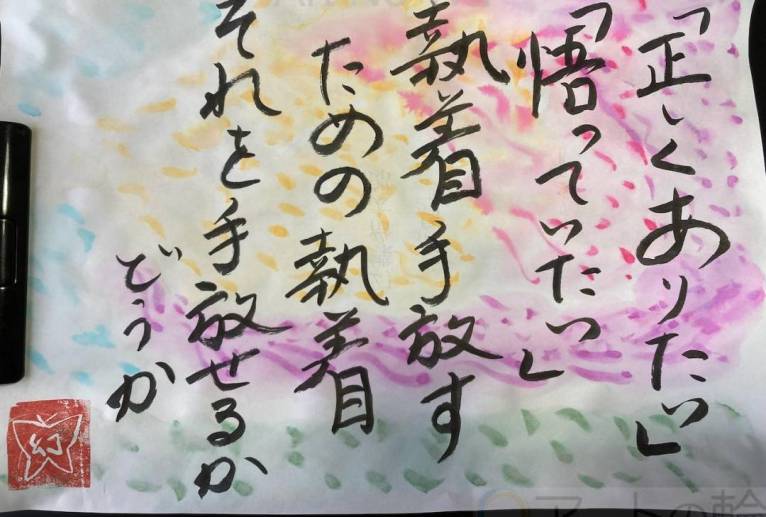 「正しくありたい」
「悟っていたい」
執着手放す
ための執着
それを手放せるか
どうか
幻
アートの輪